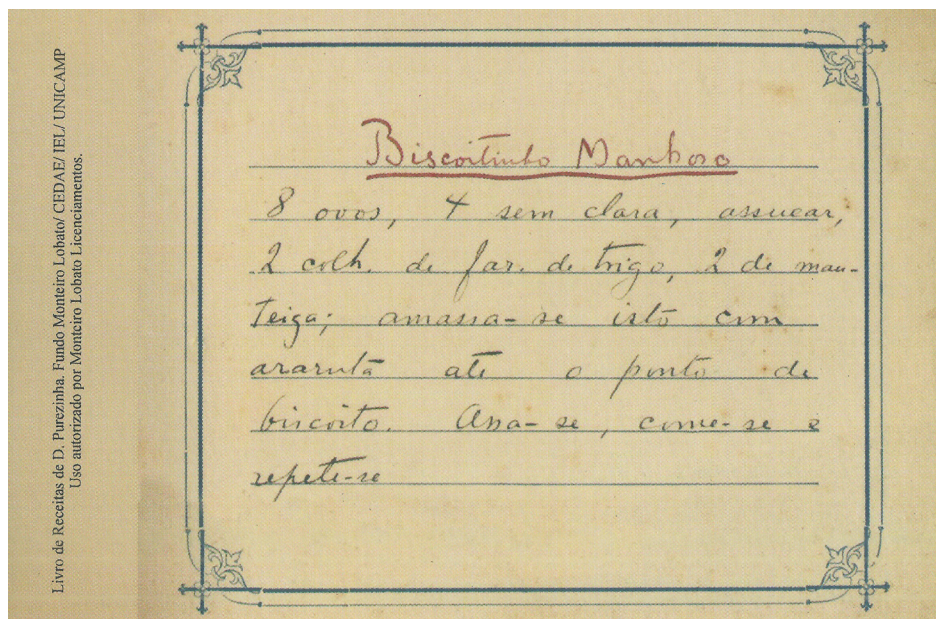 Livro de Receitas de D. Purezinha. Fundo Monteiro Lobato/ CEDAE/ IEL/ UNICAMP
Uso autorizado por Monteiro Lobato Licenciamentos.
Biscoitinho Manhoso
8 ovos, 4 sem clara, assucar,
2 colh. de far. de trigo, 2 de man-
teiga; amassa-se isto com
araruta até o ponto de
biscoito. Assa-se, come-se e
repete-se